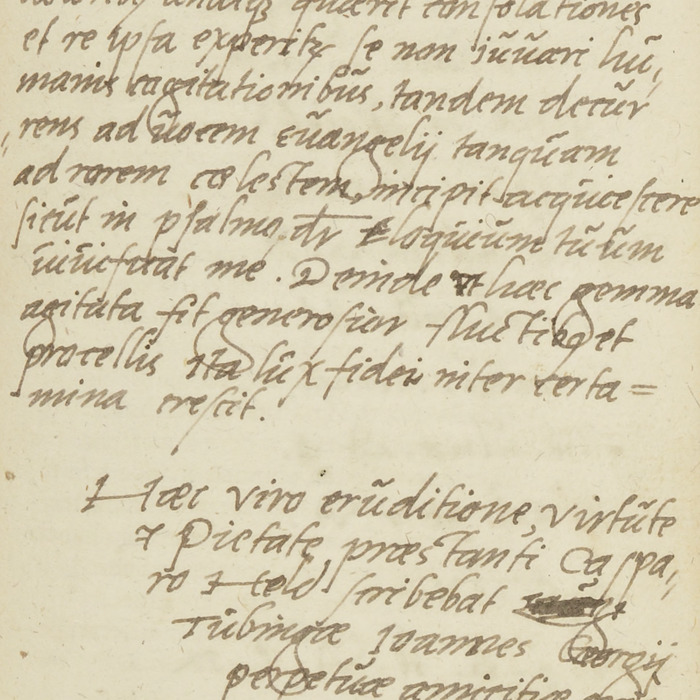 quaerit consolationes
et re ipsa experitr se non iuuari hu,
manis cogitationibus, tandem decur
,rens ad uocem Euangelij tanquam
ad rorem coelestem, incipit acquiescere
sicut in psalmo dr Eloquium tuum
uiuificat me. Deinde ut haec gemma
agitata fit generosior fluctibq et
procellis ita lux fidei inter certa=
mina crescit.
Haec viro eruditione, virtute
& Pietate praestanti Caspa,
ro Held scribebat
Tubingae Ioannes Georgij
perpetuae amicitiae